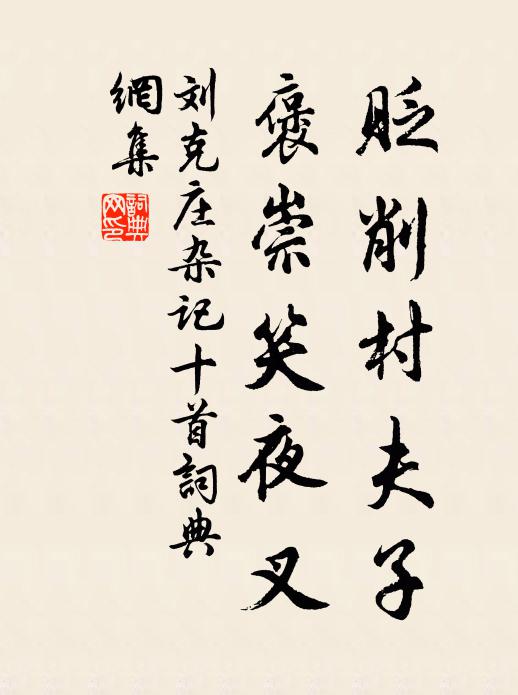 贬削村夫子
褒崇笑夜叉
刘克庄杂记十首詞典
網集
詞典
网印